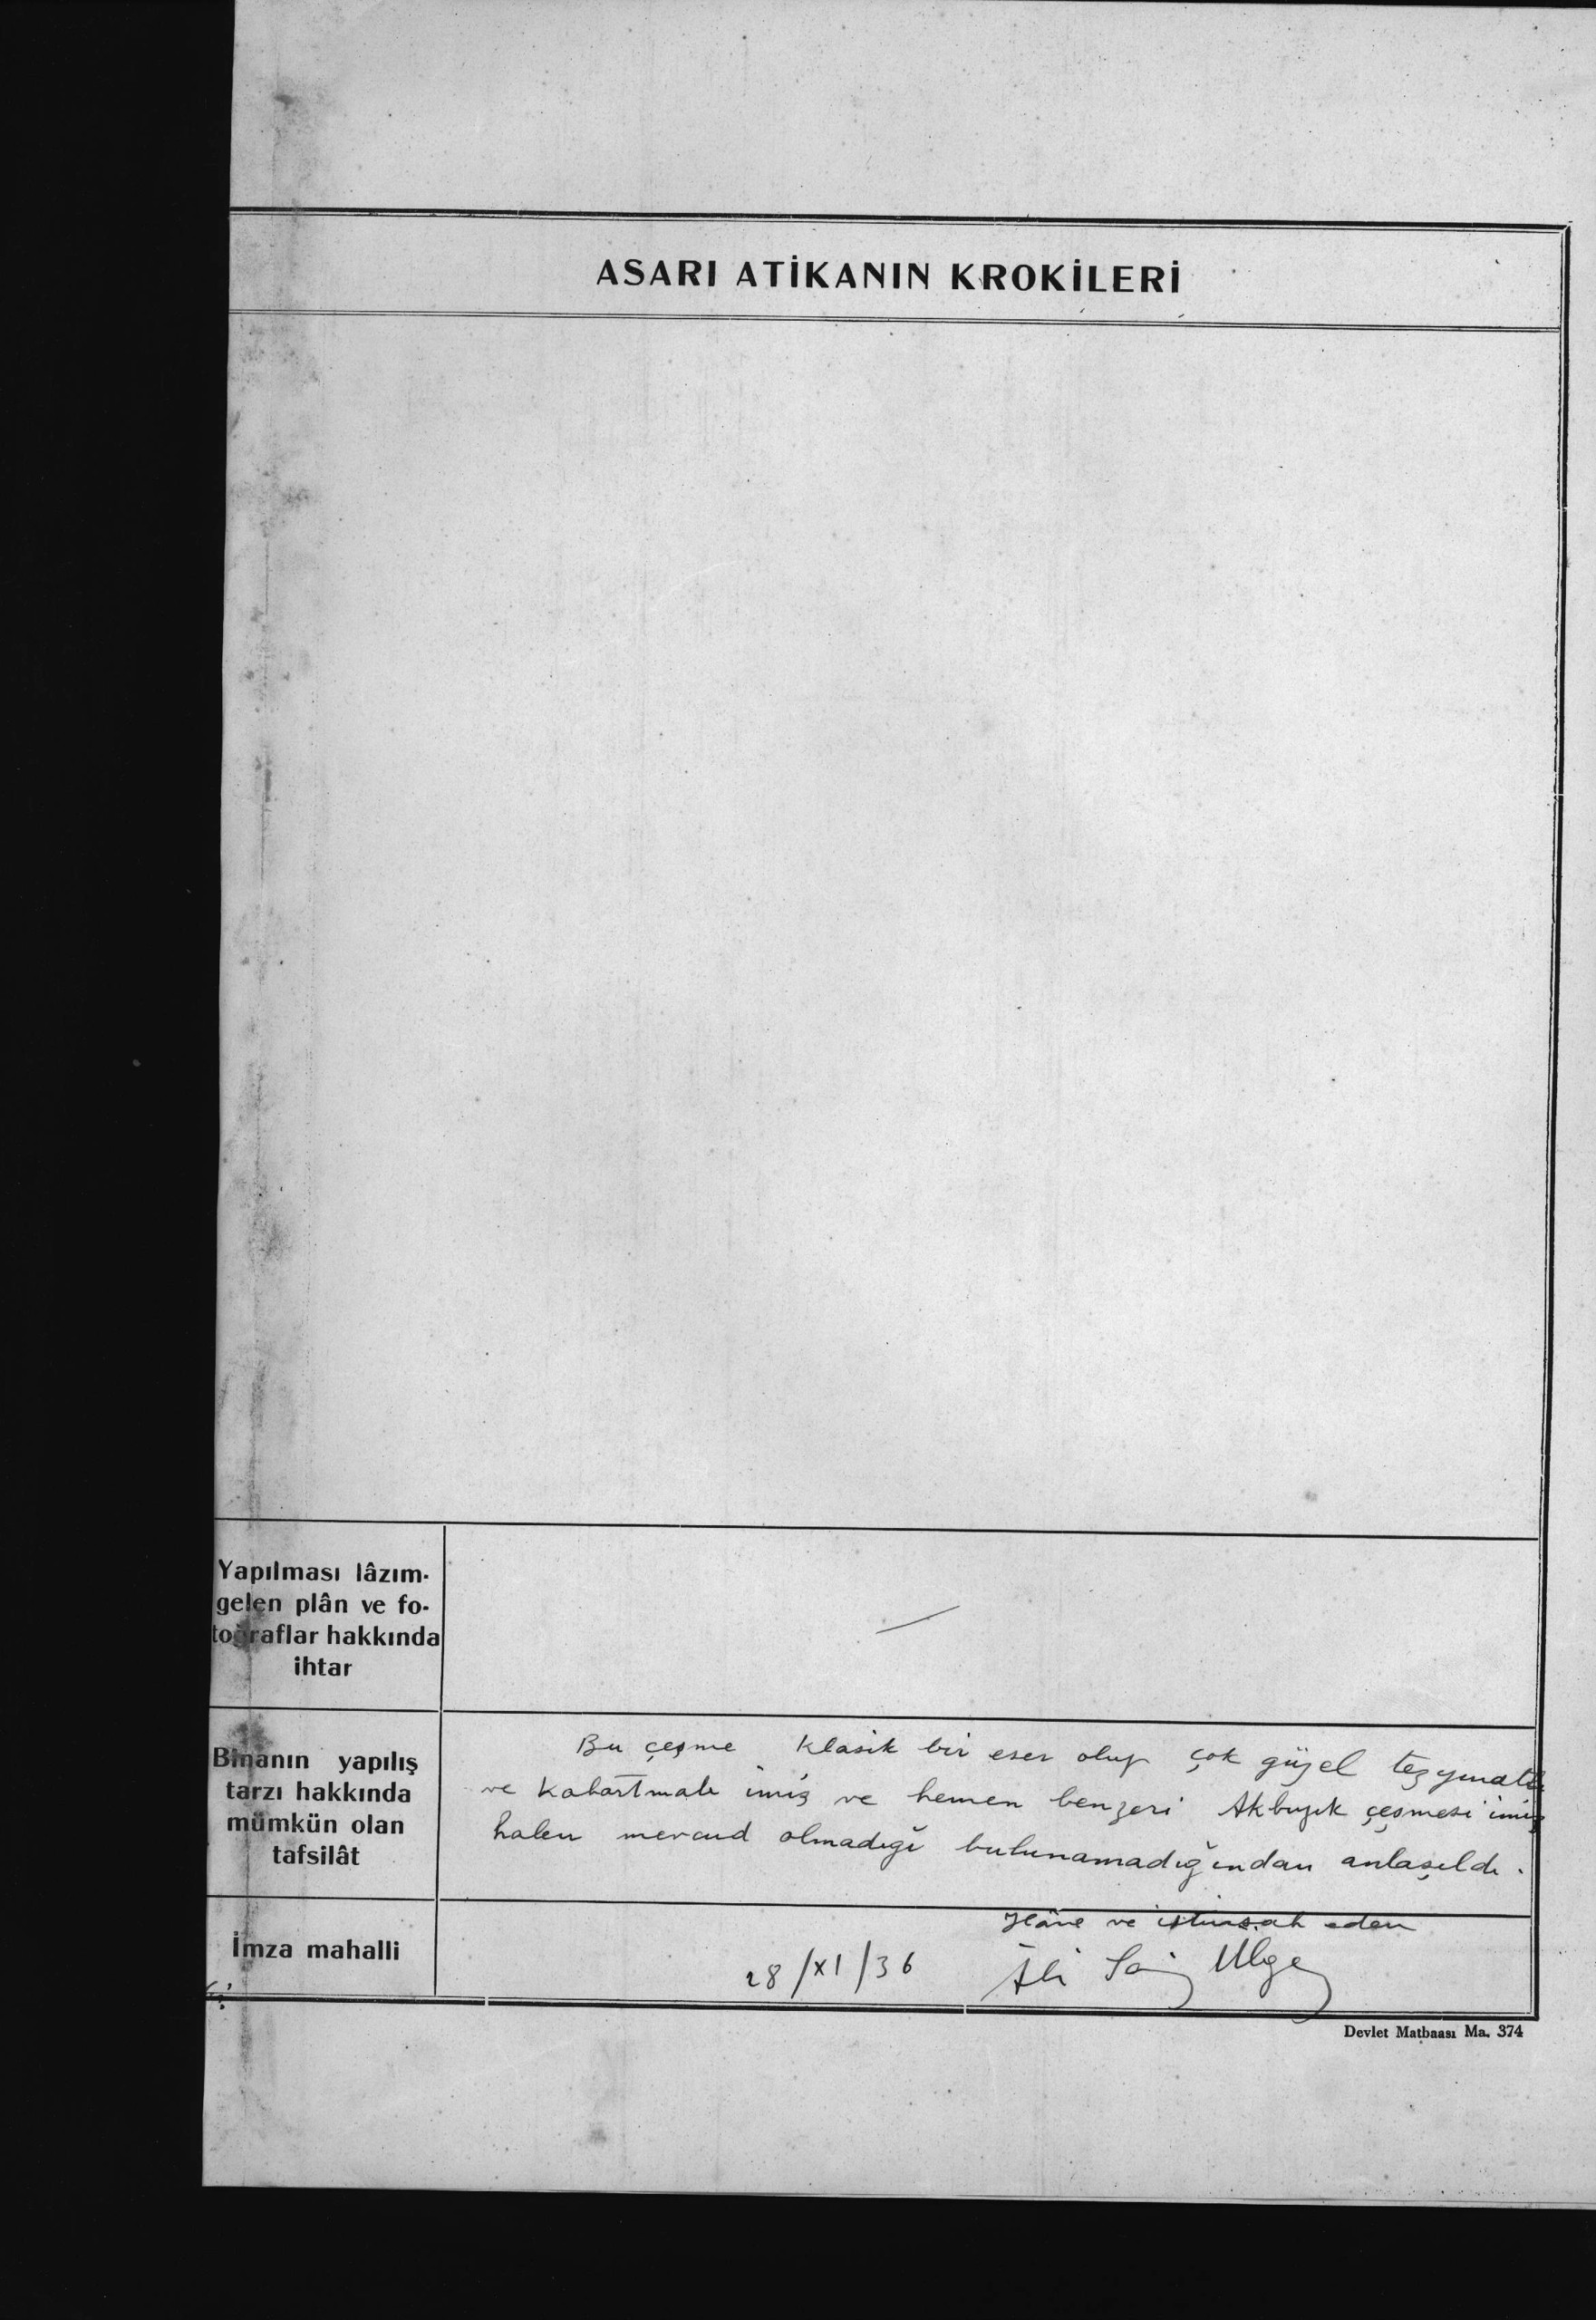 ASARI ATİKANIN KROKİLERİ
Yapılması lâzım-
gelen plân ve fo-
toğraflar hakkında
ihtar
Binanın yapılış
tarzı hakkında
mümkün olan
tafsilât
Bu çeşme klasik bir eser olup çok güzel tezyinatlı
ve kabartmalı imiş ve hemen benzeri Akbıyık çeşmesi imiş
halen mevcud olmadığı bulunamadığından anlaşıldı.
İmza mahalli
ilâve ve istinsah eden
28/XI/36 Ali Saim Ülgen
Devlet Matbaası Ma. 374